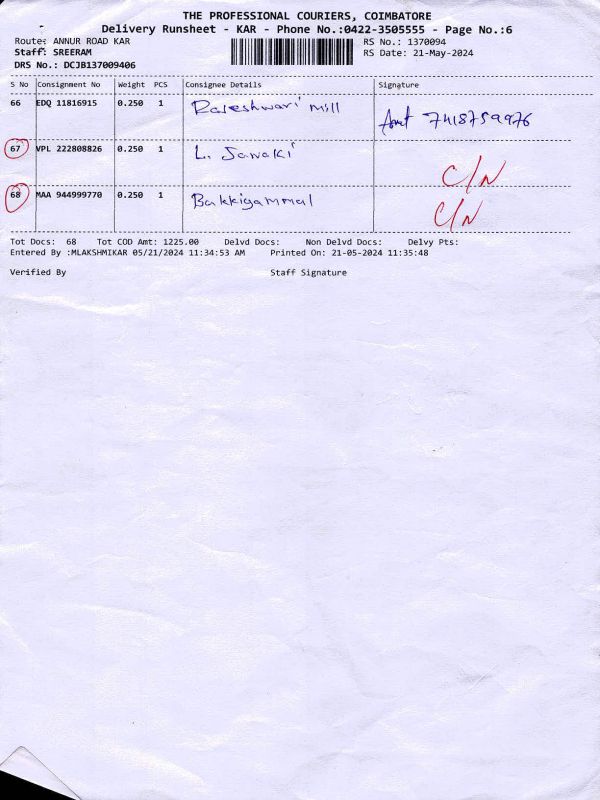 THE PROFESSIONAL COURIERS, COIMBATORE
Delivery Runsheet - KAR - Phone No.:0422-3505555 - Page No.:6
Route: ANNUR ROAD KAR RS No.: 1370094
Staff: SREERAM RS Date: 21-May-2024
DRS No.: DCJB137009406
S No Consignment No Weight PCS Consignee Details Signature
66 EDQ 11816915 0.250 1 Rajeshwari mill 7418759976
67 VPL 222808826 0.250 1 L. Janaki C/N
68 MAA 944999770 0.250 1 Bakkigammal C/N
Tot Docs: 68 Tot COD Amt: 1225.00 Delvd Docs: Non Delvd Docs: Delvy Pts:
Entered By :MLAKSHMIKAR 05/21/2024 11:34:53 AM Printed On: 21-05-2024 11:35:48
Verified By Staff Signature